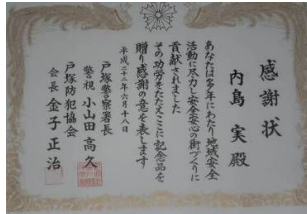 感謝状
内島 実 殿
あなたは多年にわたり地域安全
活動に尽力し安全安心の街づくりに
貢献されました
その功労をたたえここに記念品を
贈り感謝の意を表します
平成二十八年六月十八日
戸塚警察署長
警視 小山田 高久
戸塚防犯協会
会長 金子 正治